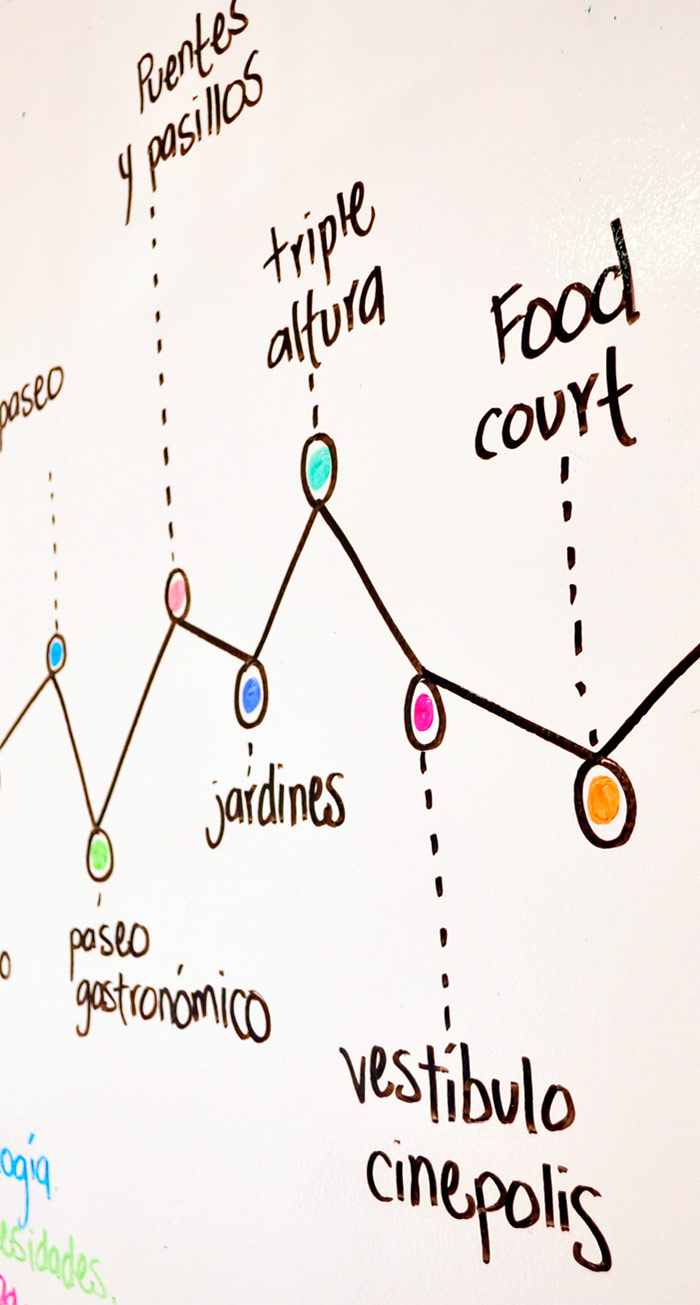 Puentes
y pasillos
triple
altura
Food
court
paseo
jardines
paseo
gastronómico
vestíbulo
cinepolis